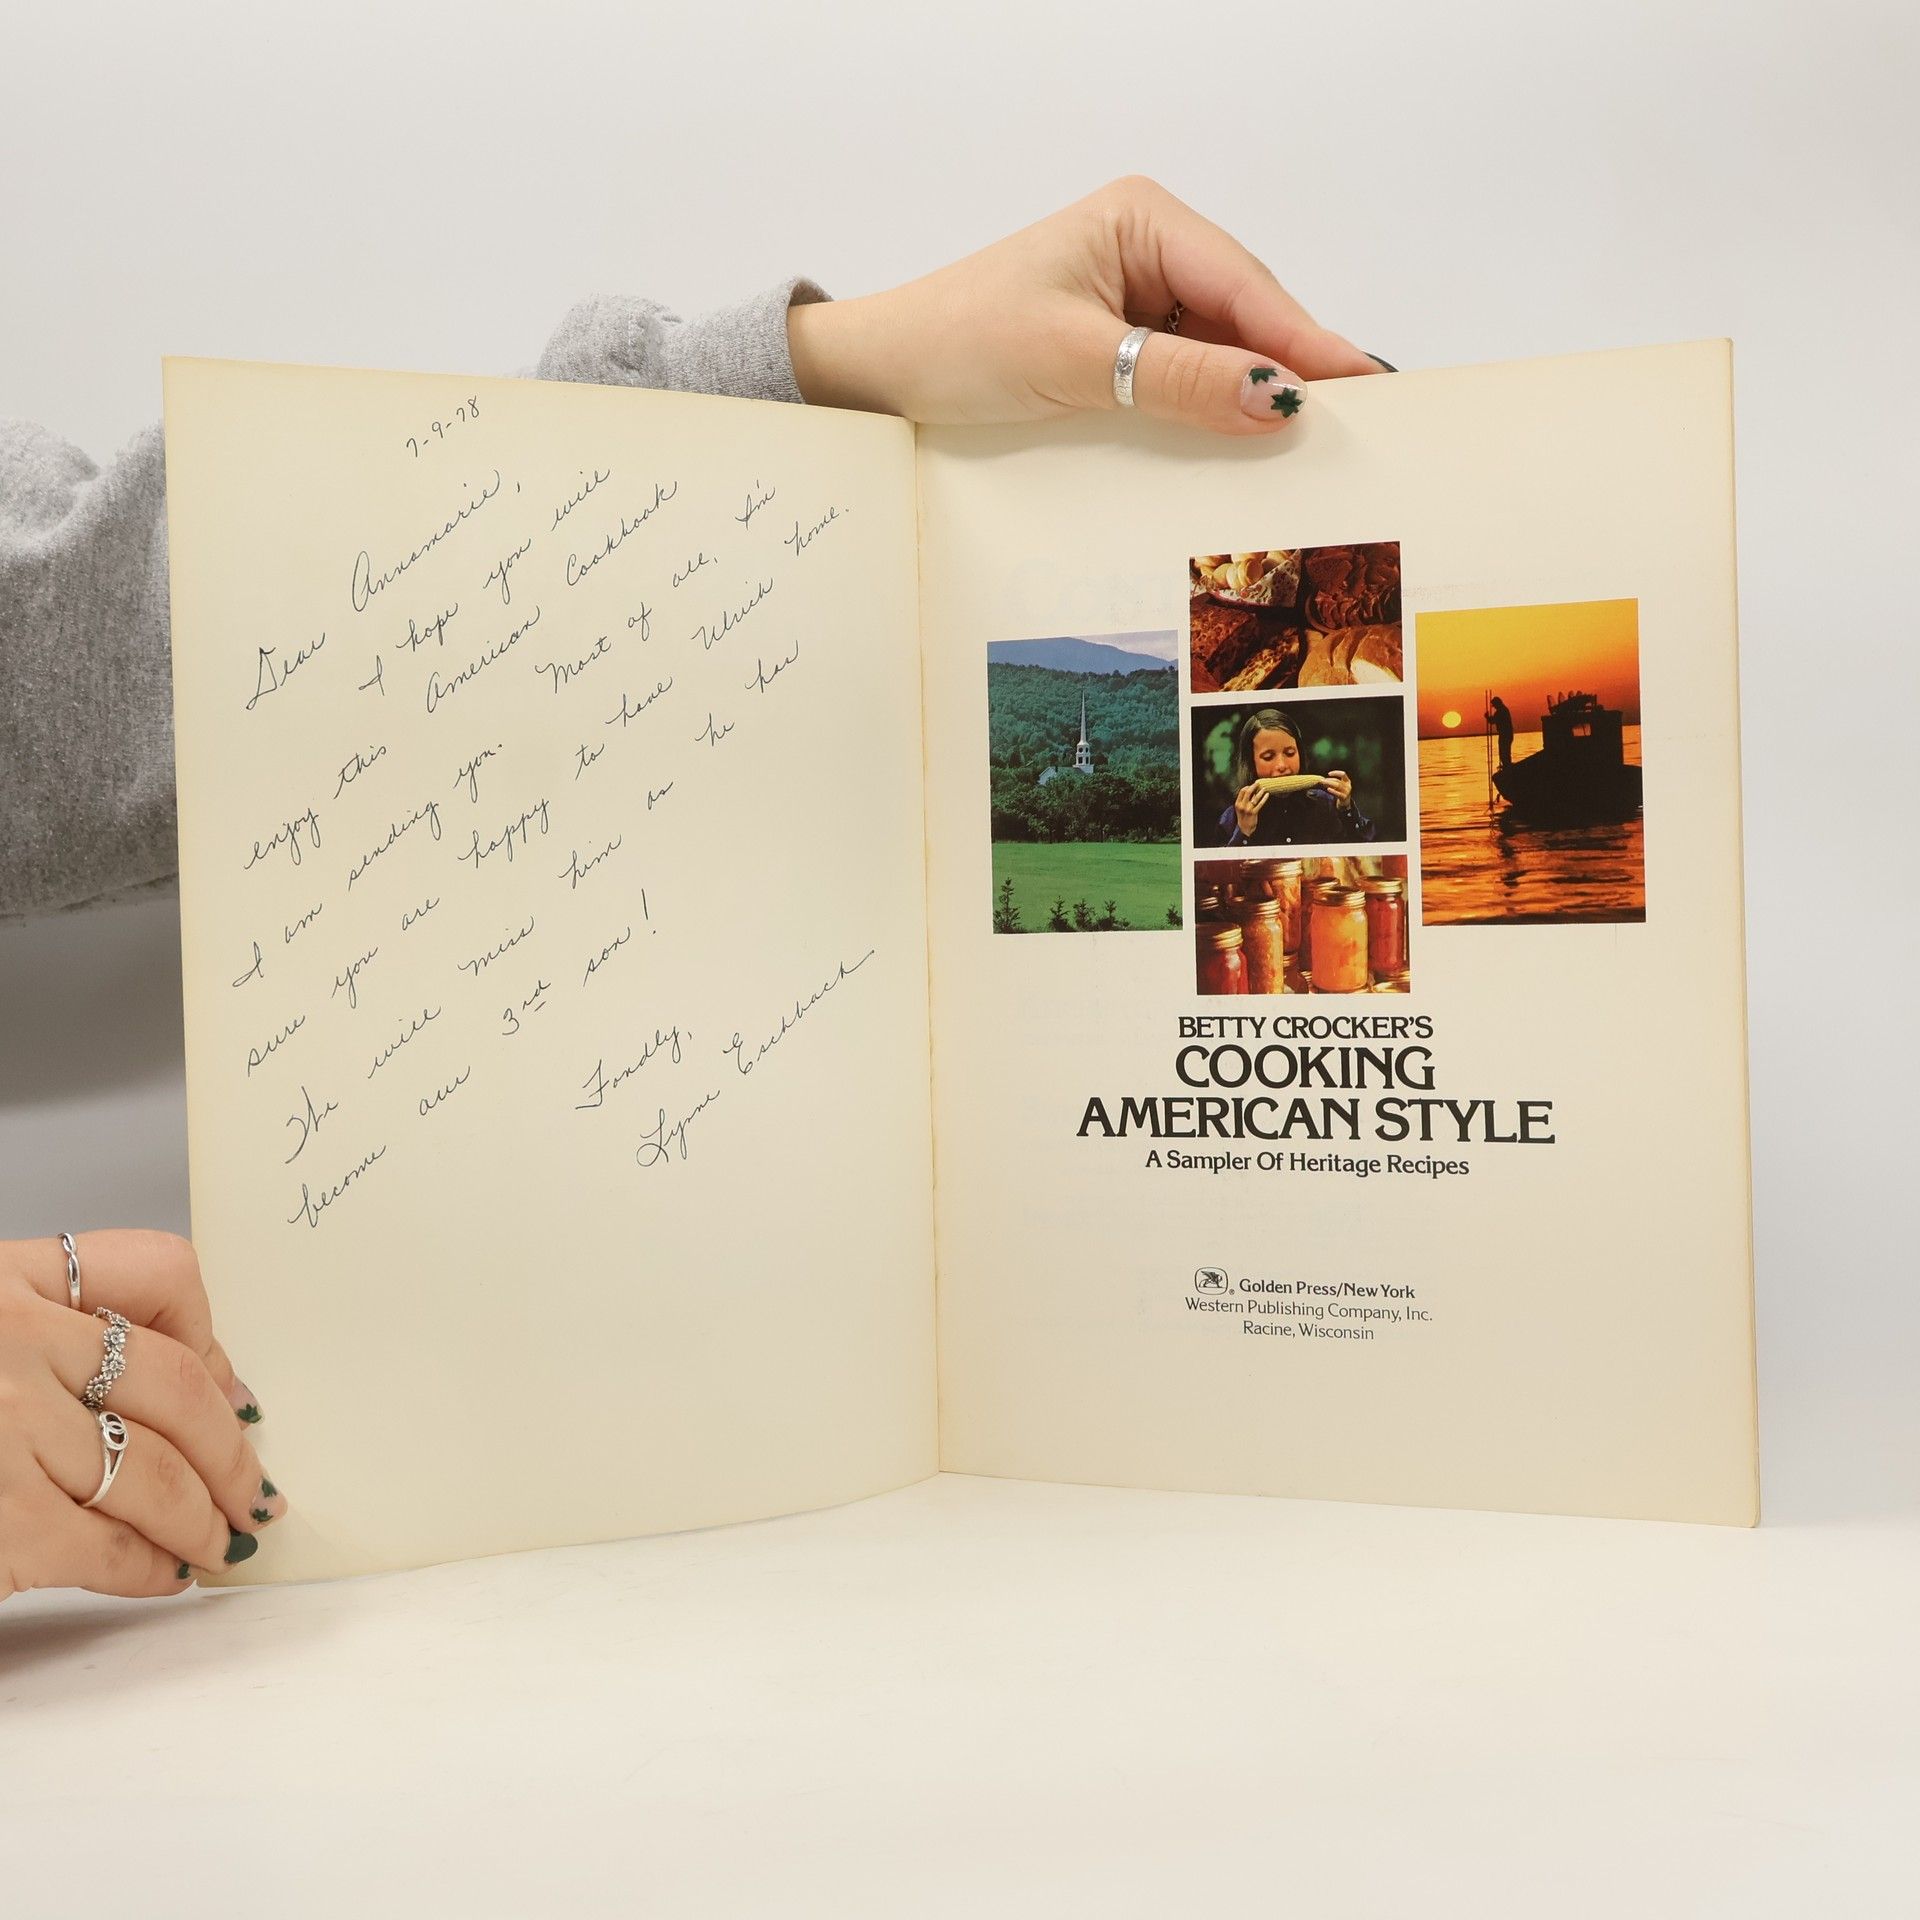 7-9-78
Dear Annamarie,
I hope you will
enjoy this American Cookbook
I am sending you. Most of all, I'm
sure you are happy to have Ulrich home.
We will miss him as he has
become our 3rd son!
Fondly,
Lynne Eschbach
BETTY CROCKER'S
COOKING
AMERICAN STYLE
A Sampler Of Heritage Recipes
® Golden Press/New York
Western Publishing Company, Inc.
Racine, Wisconsin